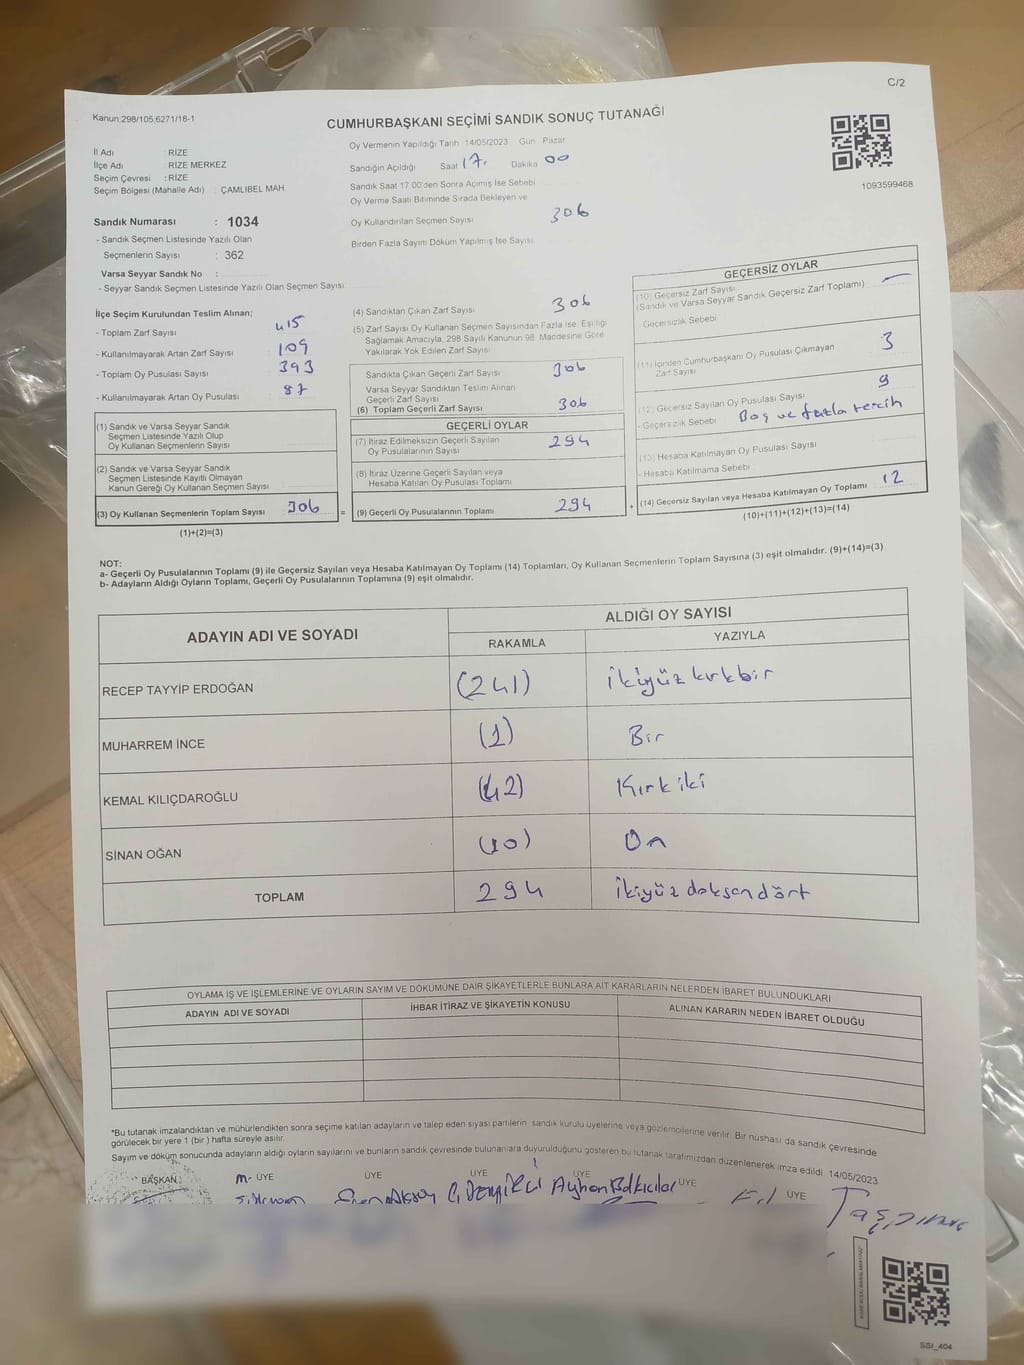 C/2
Kanun;298/105;6271/18-1
CUMHURBAŞKANI SEÇİMİ SANDIK SONUÇ TUTANAĞI
1093599468
İl Adı : RİZE
İlçe Adı : RİZE MERKEZ
Seçim Çevresi : RİZE
Seçim Bölgesi (Mahalle Adı) : ÇAMLIBEL MAH
Sandık Numarası : 1034
- Sandık Seçmen Listesinde Yazılı Olan
Seçmenlerin Sayısı : 362
Varsa Seyyar Sandık No :
- Seyyar Sandık Seçmen Listesinde Yazılı Olan Seçmen Sayısı
Oy Vermenin Yapıldığı Tarih 14/05/2023 Gün Pazar
Sandığın Açıldığı Saat 17. Dakika 00
Sandık Saat 17 00'den Sonra Açımış İse Sebebi
Oy Verme Saati Bitiminde Sırada Bekleyen ve
Oy Kullandırılan Seçmen Sayısı 306
Birden Fazla Sayım Döküm Yapılmış İse Sayısı
İlçe Seçim Kurulundan Teslim Alınan;
- Toplam Zarf Sayısı 415
- Kullanılmayarak Artan Zarf Sayısı 109
- Toplam Oy Pusulası Sayısı 393
- Kullanılmayarak Artan Oy Pusulası 87
(1) Sandık ve Varsa Seyyar Sandık
Seçmen Listesinde Yazılı Olup
Oy Kullanan Seçmenlerin Sayısı
(2) Sandık ve Varsa Seyyar Sandık
Seçmen Listesinde Kayıtlı Olmayan
Kanun Gereği Oy Kullanan Seçmen Sayısı
(3) Oy Kullanan Seçmenlerin Toplam Sayısı 306
(1)+(2)=(3)
(4) Sandıktan Çıkan Zarf Sayısı 306
(5) Zarf Sayısı Oy Kullanan Seçmen Sayısından Fazla İse, Eşitliği
Sağlamak Amacıyla, 298 Sayılı Kanunun 98 Maddesine Göre
Yakılarak Yok Edilen Zarf Sayısı
Sandıkta Çıkan Geçerli Zarf Sayısı 306
Varsa Seyyar Sandıktan Teslim Alınan
Geçerli Zarf Sayısı
(6) Toplam Geçerli Zarf Sayısı 306
GEÇERLİ OYLAR
(7) İtiraz Edilmeksizin Geçerli Sayılan
Oy Pusulalarının Sayısı 294
(8) İtiraz Üzerine Geçerli Sayılan veya
Hesaba Katılan Oy Pusulası Toplamı
= (9) Geçerli Oy Pusulalarının Toplamı 294
GEÇERSİZ OYLAR
(10) Geçersiz Zarf Sayısı
(Sandık ve Varsa Seyyar Sandık Geçersiz Zarf Toplamı) —
Geçersizlik Sebebi
(11) İçinden Cumhurbaşkanı Oy Pusulası Çıkmayan
Zarf Sayısı 3
(12) Geçersiz Sayılan Oy Pusulası Sayısı 9
- Geçersizlik Sebebi Boş ve fazla tercih
(13) Hesaba Katılmayan Oy Pusulası Sayısı
- Hesaba Katılmama Sebebi
+ (14) Geçersiz Sayılan veya Hesaba Katılmayan Oy Toplamı 12
(10)+(11)+(12)+(13)=(14)
NOT:
a- Geçerli Oy Pusulalarının Toplamı (9) ile Geçersiz Sayılan veya Hesaba Katılmayan Oy Toplamı (14) Toplamları, Oy Kullanan Seçmenlerin Toplam Sayısına (3) eşit olmalıdır. (9)+(14)=(3)
b- Adayların Aldığı Oyların Toplamı, Geçerli Oy Pusulalarının Toplamına (9) eşit olmalıdır.
ADAYIN ADI VE SOYADI ALDIĞI OY SAYISI
RAKAMLA YAZIYLA
RECEP TAYYİP ERDOĞAN (241) İkiyüzkırkbir
MUHARREM İNCE (1) Bir
KEMAL KILIÇDAROĞLU (42) Kırkiki
SİNAN OĞAN (10) On
TOPLAM 294 İkiyüz doksan dört
OYLAMA İŞ VE İŞLEMLERİNE VE OYLARIN SAYIM VE DÖKÜMÜNE DAİR ŞİKAYETLERLE BUNLARA AİT KARARLARIN NELERDEN İBARET BULUNDUKLARI
ADAYIN ADI VE SOYADI İHBAR İTİRAZ VE ŞİKAYETİN KONUSU ALINAN KARARIN NEDEN İBARET OLDUĞU
*Bu tutanak imzalandıktan ve mühürlendikten sonra seçime katılan adayların ve talep eden siyasi partilerin sandık kurulu üyelerine veya gözlemcilerine verilir Bir nüshası da sandık çevresinde
görülecek bir yere 1 (bir) hafta süreyle asılır.
Sayım ve döküm sonucunda adayların aldığı oyların sayılarını ve bunların sandık çevresinde bulunanlara duyurulduğunu gösteren bu tutanak tarafımızdan düzenlenerek imza edildi. 14/05/2023
BAŞKAN ÜYE ÜYE ÜYE ÜYE ÜYE ÜYE
Ayhan Balkıcılar
SSI_404